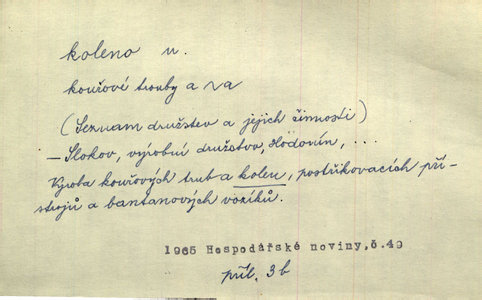 koleno n.
kouřové trouby a na
(Seznam družstev a jejich činností)
– Slokov, výrobní družstvo, Hodonín, ...
Výroba kouřových trub a kolen, postřikovacích pří-
strojů a bantamových vozíků.
1965 Hospodářské noviny, č. 49
příl. 3b